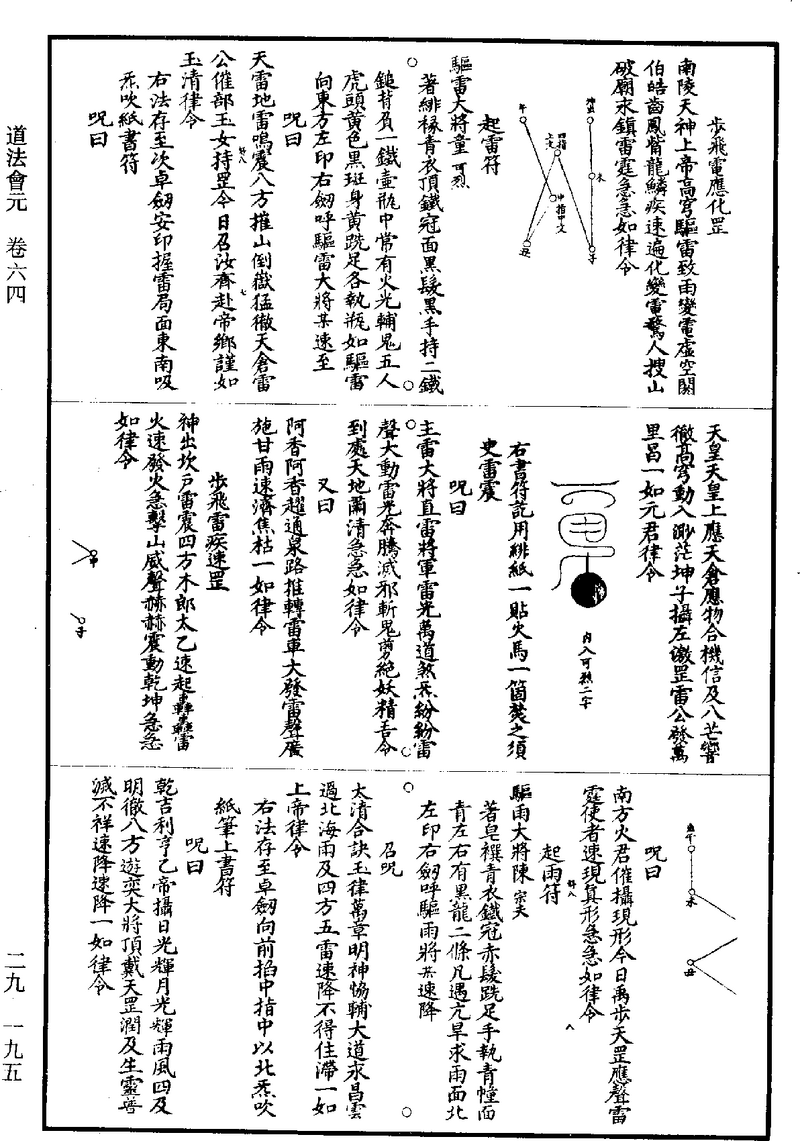 道法會元 卷六四
步飛電應化罡
南陵天神上帝高穹驅雷致雨變電虛空闕
伯皓齒鳳觜龍鱗疾速遍化變電驚人搜山
破廟永鎮雷霆急急如律令
未
四指上文
中指中文
午
丑
子
起雷符
驅雷大將童可烈
著緋褖青衣頂鐵冠面黑髮黑手持二鐵
鎚背負一鐵壺瓶中常有火光輔鬼五人
虎頭黃色黑斑身黃跣足各執瓶如驅雷
向東方左印右劒呼驅雷大將某速至
呪曰
天雷地雷鳴震八方摧山倒嶽猛徹天倉雷
公催部玉女持罡今日召汝齊赴帝鄉謹如
玉清律令
右法存至次卓劒安印握雷局面東南吸
炁吹紙書符
呪曰
天皇天皇上應天倉應物合機信及八芒響
徹高穹動入渺茫坤子攝左激罡雷公發萬
里昌一如元君律令
內入可烈二字
右書符訖用緋紙一貼火馬一箇焚之須
史雷震
呪曰
主雷大將直雷將軍雷光萬道煞炁紛紛雷
聲大動雷光奔騰滅邪斬鬼剪絕妖精吾令
到處天地肅清急急如律令
又曰
阿香阿香趨通泉路推轉雷車大發雷聲廣
施甘雨速濟焦枯一如律令
步飛雷疾速罡
神出坎戶雷震四方木郎太乙速起轟轟雷
火速發火急擊山威聲赫赫震動乾坤急急
如律令
申
子
午
未
丑
呪曰
南方火君催攝現形今日禹步天罡應聲雷
霆使者速現真形急急如律令
起雨符
驅雨大將陳宗夫
著皂襈青衣鐵冠赤髮跣足手執青幢面
青左右有黑龍二條凡遇亢旱求雨面北
左印右劒呼驅雨將某速降
召呪
太清合訣玉律萬章明神恊輔大道永昌雲
過北海雨及四方五雷速降不得住滯一如
上帝律令
右法存至卓劒向前掐中指中以北炁吹
紙筆上書符
呪曰
乾吉利亨乙帝攝日光輝月光輝雨風四及
明徹八方遊奕大將頂戴天罡潤及生靈普
滅不祥速降速降一如律令
二九 一九五